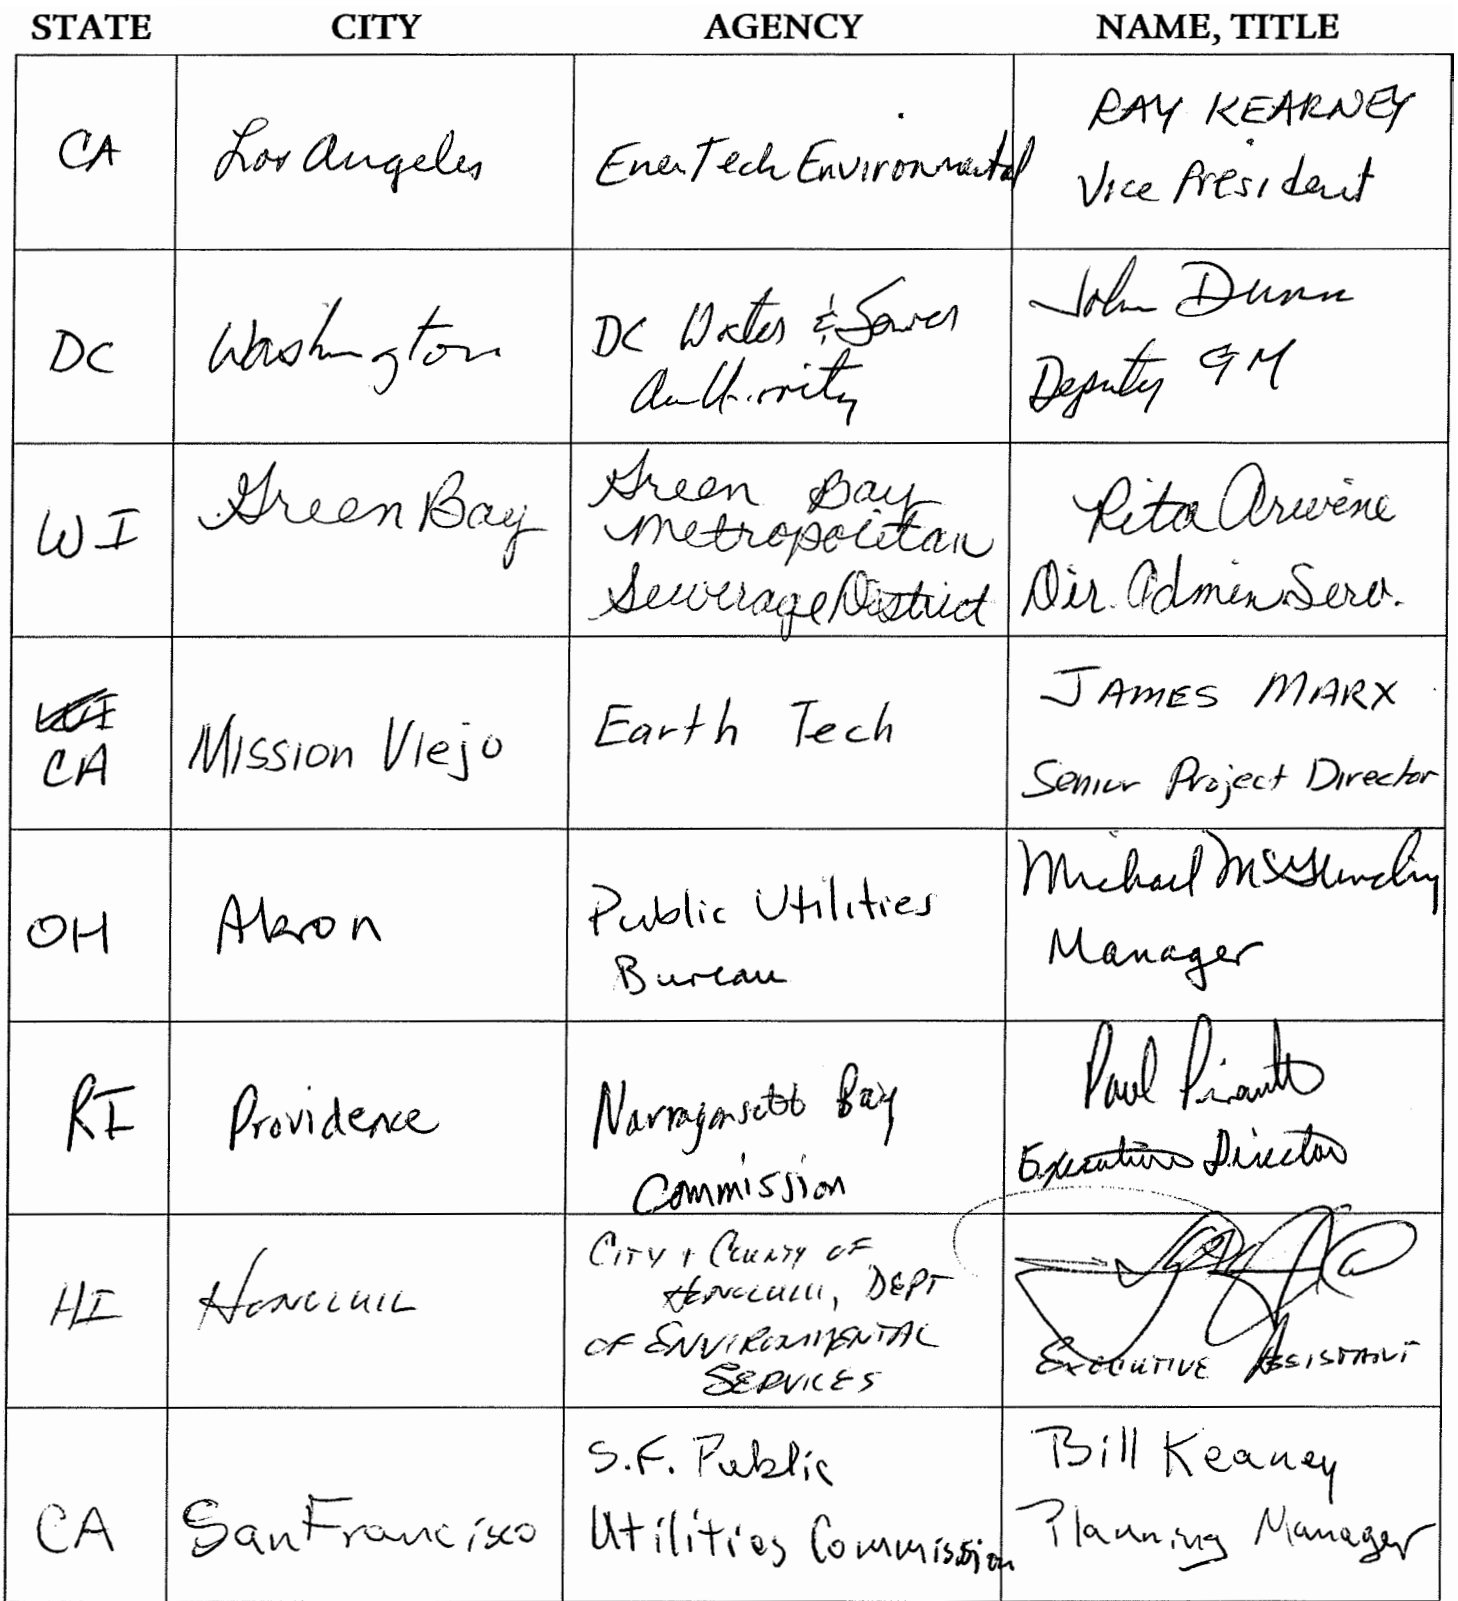 STATE CITY AGENCY NAME, TITLE
CA Los Angeles EnerTech Environmental RAY KEARNEY
Vice President
DC Washington DC Water & Sewer John Dunn
Authority Deputy GM
WI Green Bay Green Bay Rita Arwine
Metropolitan
Sewerage District Dir. Admin Serv.
CA Mission Viejo Earth Tech JAMES MARX
Senior Project Director
OH Akron Public Utilities Michael
Bureau Manager
RI Providence Narragansett Bay Paul
Commission Executive Director
HI HONOLULU CITY + COUNTY OF
HONOLULU, DEPT
OF ENVIRONMENTAL
SERVICES EXECUTIVE ASSISTANT
CA San Francisco S.F. Public Bill Keaney
Utilities Commission Planning Manager